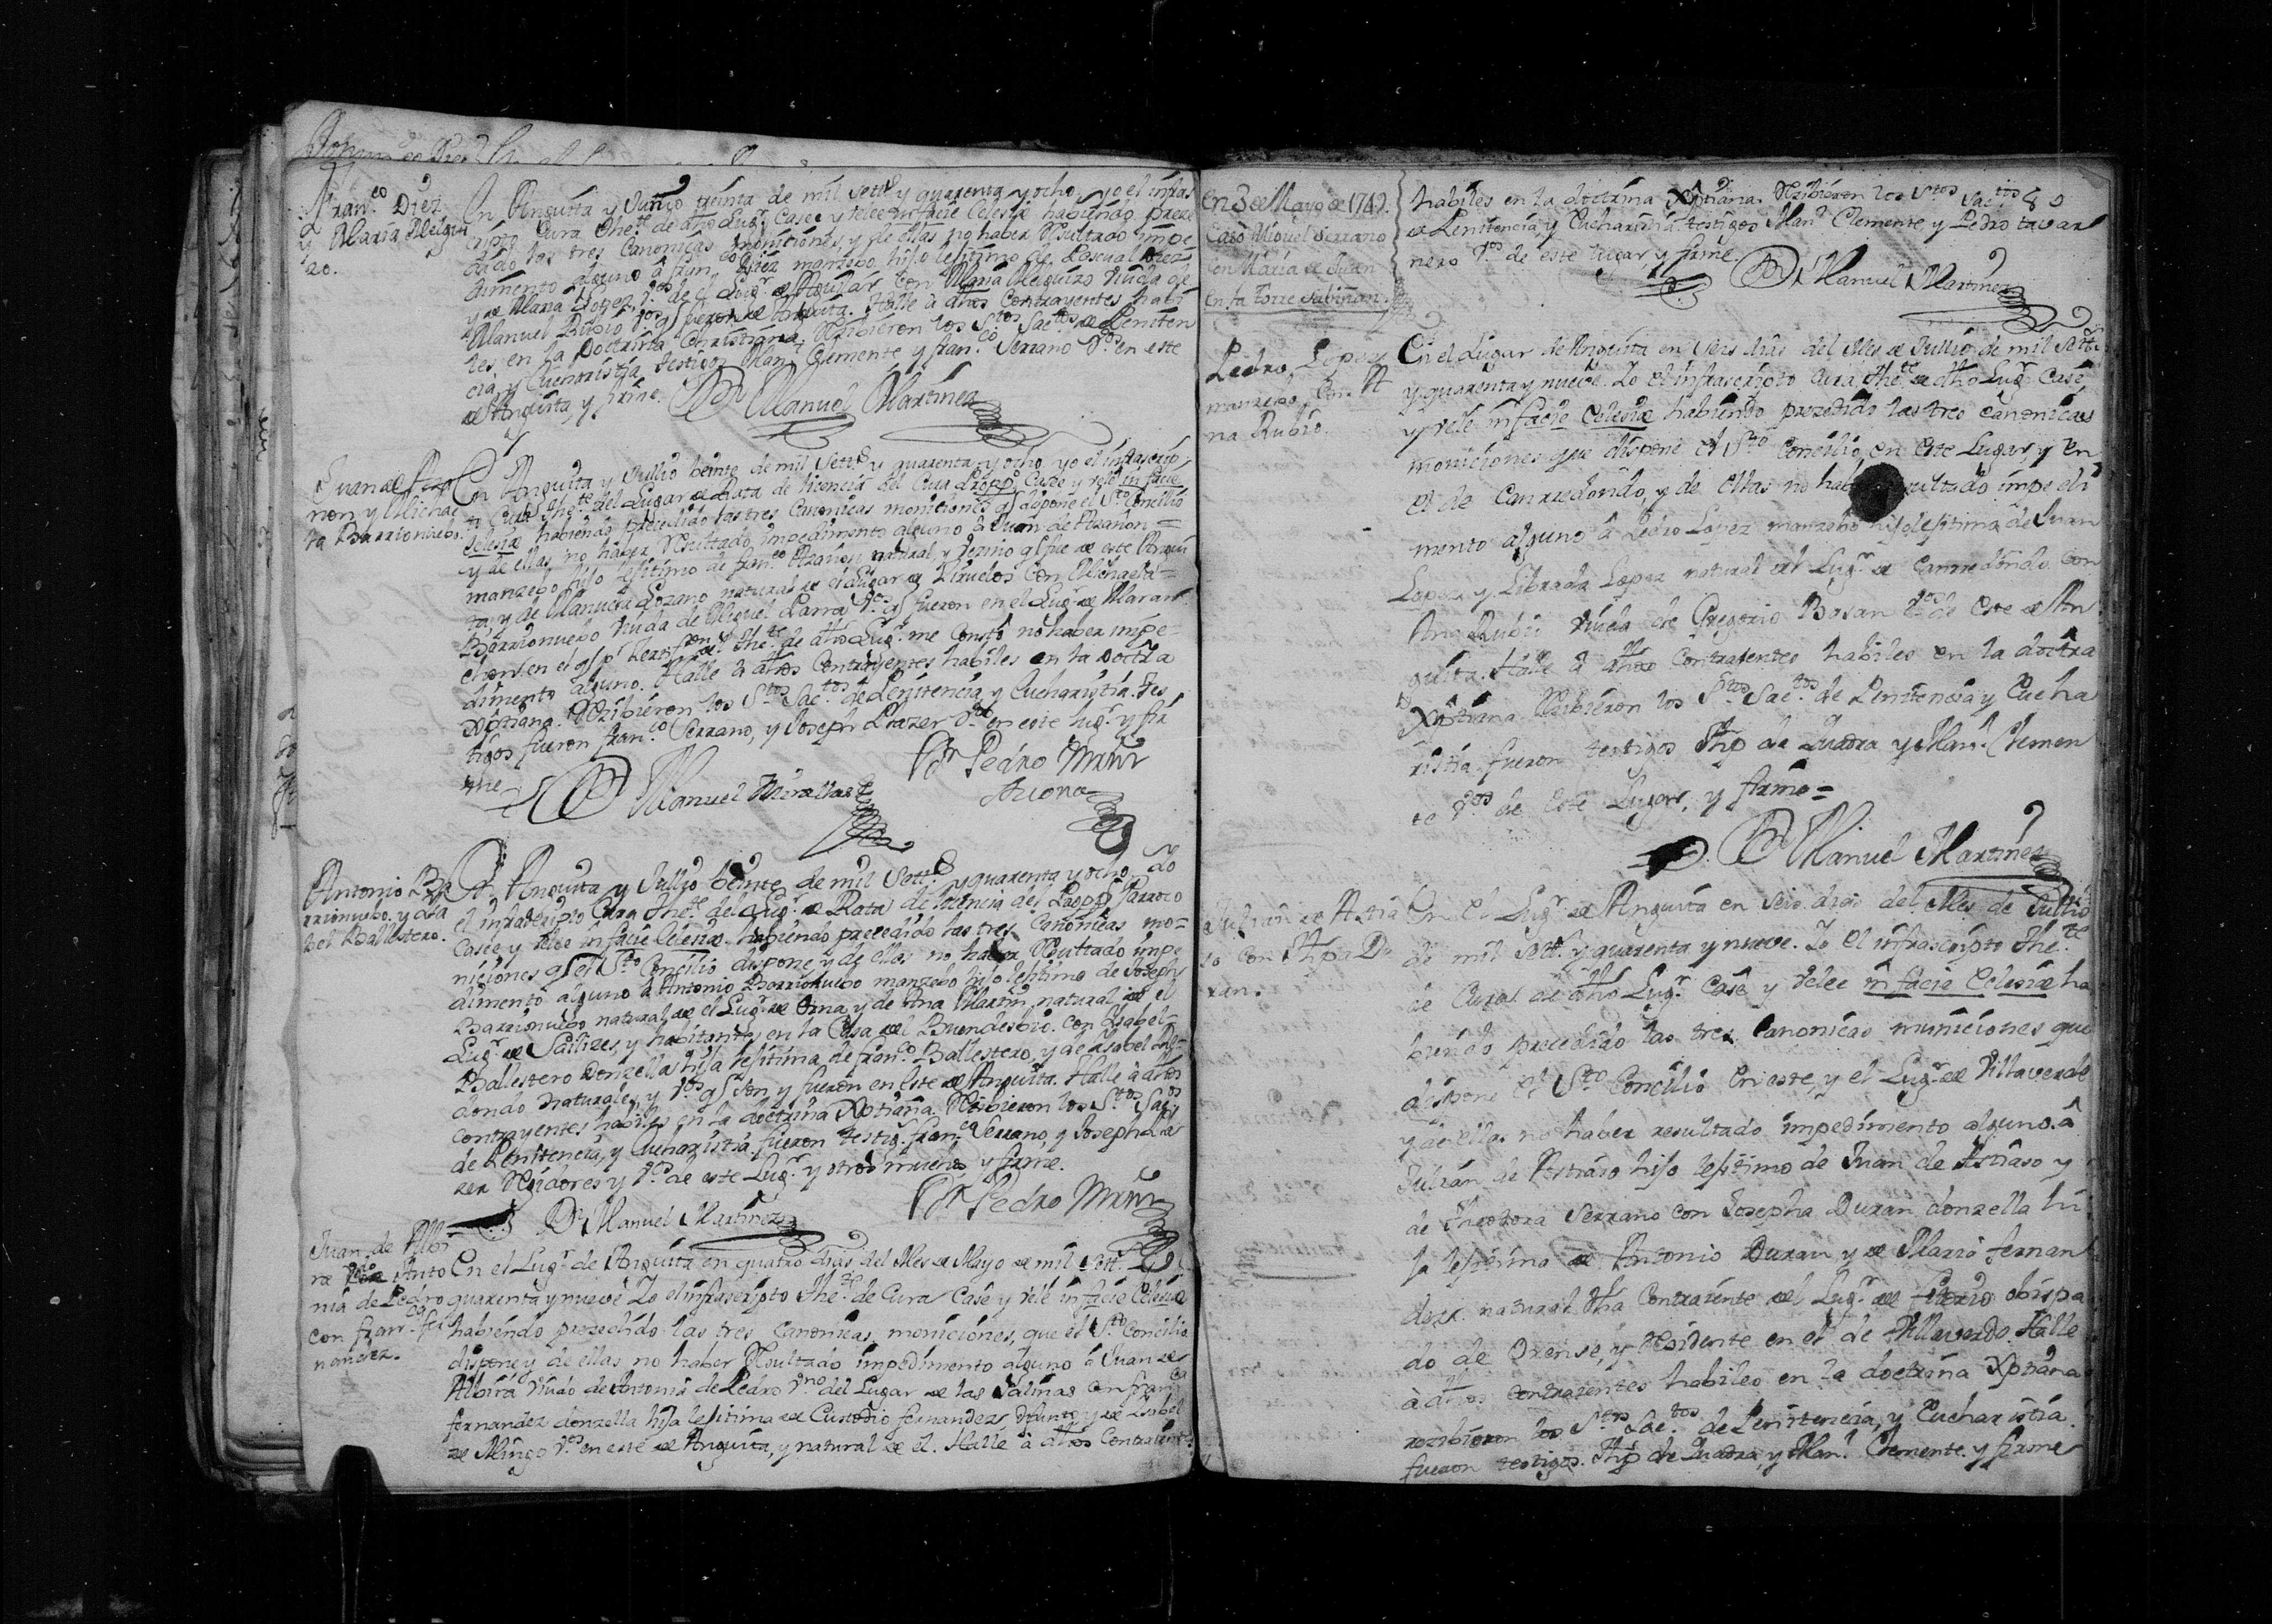 Fran.co Diez
y Maria Melgui
zo.
En Anguita y Junio treinta de mil Sett.s y quarenta y ocho yo el infras
cripto Cura The.te de dho Lug.r Casee y velee in facie Eclesie habiendo prece
dido las tres Canonicas moniciones, y de ellas no haber Resultado impe
dimento alguno à fran.co Diez manzebo hijo lesitimo de Pascual Diez
y de Maria Lopez v.os de el Lug.r de Aguilar con Maria Melguizo viuda de
Manuel Rubio v.os q fueron de Anguita. Halle à dhos Contrayentes habi
les en la Doctrina Christiana, Rzibieron los S.tos Sac.tos de Peniten
cia, y Eucharistia, testigos Man.l Clemente y fran.co Serrano v.os en este
de Anguita, y firme.
D.r Manuel Martinez
Juan de Arañ
non y Michae
la Barrionuebo.
En Anguita y Jullio beinte de mil Sett.s y quarenta y ocho yo el infrascrip
to Cura The.te del Lugar de Rata de licencia del Cura Propp.o Casee y rele in facie
Eclesiæ habiendo precedido las tres Canonicas moniciones q dispone el S.to Concilio
y de ellas no haber Resultado impedimento alguno à Juan de Arañon =
manzebo hijo lesitimo de fran.co Arañon natural, y vezino q fue de este Angui
ta, y de Manuela Lozano natural de el Lugar de Ziruelos con Michaela =
Barrionuebo Viuda de Miguel Parra v.os q fueron en el Lug.r de Maran
chon, en el q p.r Certif.on del The.te de dho Lug.r me Constó no haber impe
dimento alguno. Halle à dhos Contrayentes habiles en la Doctrina
Xptiana. Rzibieron los S.tos Sac.tos de Penitencia, y Eucharistia. tes
tigos fueron fran.co Serrano, y Joseph Lazer v.os en este lug.r y fir
me
Manuel
Pedro
Antonio Ba
rrionuebo. y Isa
bel Ballestero.
En Anguita y Jullio beinte de mil Sett.s y quarenta y ocho, Yo
el infrascripto Cura The.te del Lug.r de Rata de licencia del Propp.o Parroco
Casee y velee in facie Eclesiæ habiendo precedido las tres Canonicas mo=
niciones q el S.to Concilio dispone, y de ellas no haber Resultado impe
dimento alguno à Antonio Barrionuebo manzebo hijo lesitimo de Joseph
Barrionuebo natural de el Lug.r de and y de Ana Martin, natural de el
Lug.r de Saelizes, y habitantes en la Casa del Buendesbio. con Isabel=
Ballestero Donzella hija lesitima de fran.co Ballestero, y de Isabel
dondo naturales, y v.os q son, y fueron en este de Anguita. Halle à dhos
contrayentes habiles en la doctrina Xptiana Rzibieron los S.tos Sac.tos
de Penitencia, y Eucharistia fueron testig.s fran.co Serrano, y Joseph La
zer Rejidores y v.os de este Lug.r y otros muchos y firme.
D.r Manuel Martinez
Pedro
Juan de Albi
ra Anto
nia de Pedro
con fran.ca fer
nandez.
En el Lug.r de Anguita en quatro dias del Mes de Mayo de mil Sett.s
quarenta y nueve Yo el infrascripto The.te de Cura Case y velé in facie Eclesiæ
habiendo prezedido las tres Canonicas, moniciones, que el S.to Concilio
dispone y de ellas no haber Resultado impedimento alguno à Juan de
Albira viudo de Antonia de Pedro v.no del Lugar de las Salinas con fran.ca
fernandez donzella hija lesitima de Custodio fernandez difunto, y de Isabel
de Mingo v.os en este de Anguita, y natural de el. Halle à dhos Contraient.s
En 3 de Mayo de 1749.
Caso Miguel Serrano
con Maria de Juan
en la Torre Sabiñan.
habiles en la doctrina Xptiana. Rzibieron los S.tos Sac.tos
de Penitencia, y Eucharistia testigos Man.l Clemente y Pedro tavar
nero v.os de este lugar y firme
D.r Manuel Martinez
Pedro Lopez
manzebo, con A
na Rubio.
En el Lugar de Anguita en seis dias del Mes de Jullio de mil Sett.s
y quarenta y nueve. Yo el infrascripto Cura The.te de dho Lug.r Casé
y velé in facie Eclesiæ habiendo prezedido las tres canonicas
moniciones que dispone el S.to Concilio, en este Lugar, y en
el de Canrredondo, y de ellas no haber resultado impedi
mento alguno à Pedro Lopez manzebo hijo lesitimo de Juan
Lopez y Librada Lopez natural del Lug.r de Canrredondo con
Ana Rubio viuda de Gregorio Bosan v.os de este de An
guita. Halle à dhos contraientes habiles en la doctrina
Xptiana Rzibieron los S.tos Sac.tos de Penitencia y Eucha
ristia fueron testigos Php de Quadra y Man.l Clemen
te v.os de este Lugar, y firme =
D.r Manuel Martinez
Julian de Astra
so con Jhpa Du
ran.
En el Lug.r de Anguita en seis dias del Mes de Jullio
de mil Sett.s y quarenta y nueve. Yo el infrascripto The.te
de Cura de dho Lug.r Casé y velee in facie Eclesiæ ha
biendo precedido las tres Canonicas moniciones que
dispone el S.to Concilio en este, y el Lug.r de Villaverde
y de ellas no haber resultado impedimento alguno. à
Julian de Astraso hijo lesitimo de Juan de Astraso y
de Theodora Serrano con Josepha Duran donzella hi
ja lesitima de Antonio Duran y de Maria fernan
dez. natural dha Contraiente del Lug.r de obispa
do de Orense, y Residente en el de Villaverde. Halle
à dhos contraientes habiles en la doctrina Xptiana
rezibieron los S.tos Sac.tos de Penitencia, y Eucharistia.
fueron testigos. Php de Quadra, y Man.l Clemente. y firme